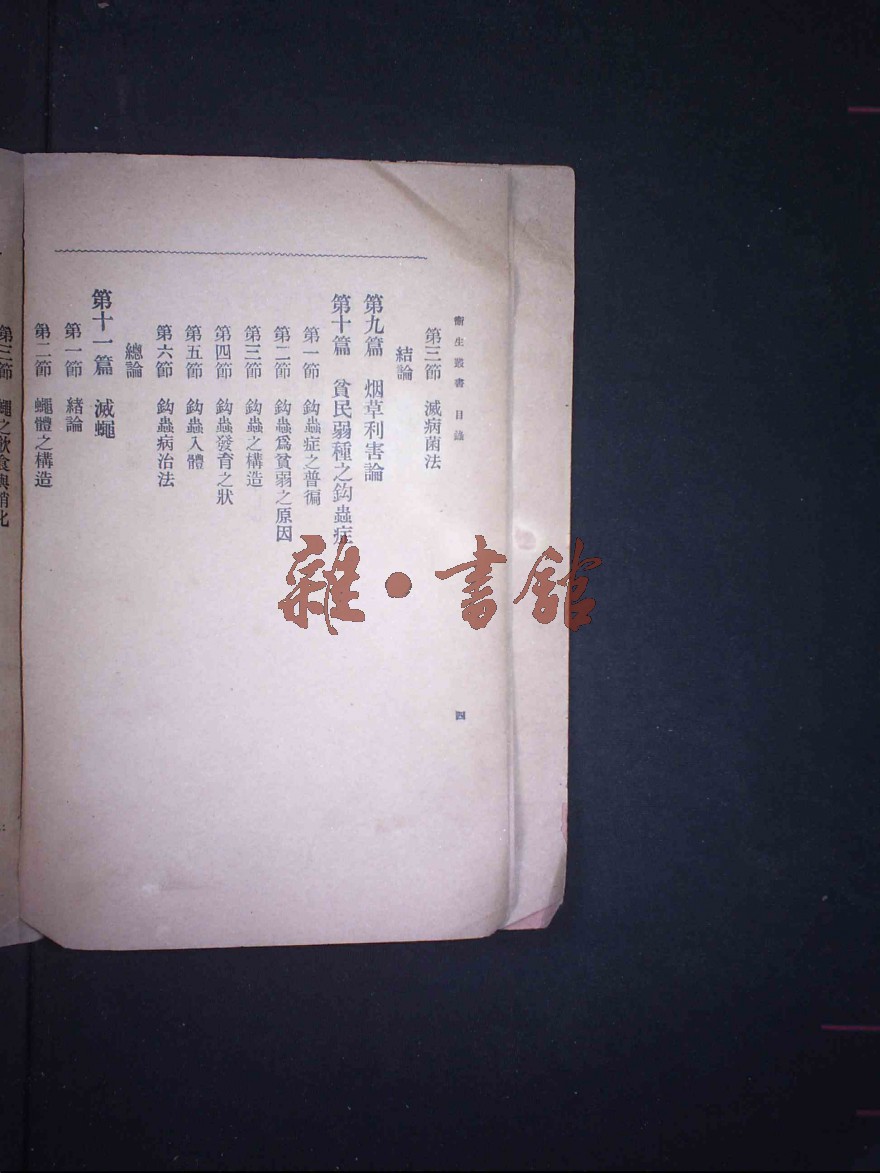 衞生叢書 目錄
四
第三節 滅病菌法
結論
第九篇 烟草利害論
第十篇 貧民弱種之鈎蟲症
第一節 鈎蟲症之普徧
第二節 鈎蟲爲貧弱之原因
第三節 鈎蟲之構造
第四節 鈎蟲發育之狀
第五節 鈎蟲入體
第六節 鈎蟲病治法
總論
第十一篇 滅蠅
第一節 緒論
第二節 蠅體之構造
第三節 蠅之飲食與消化
雜·書館